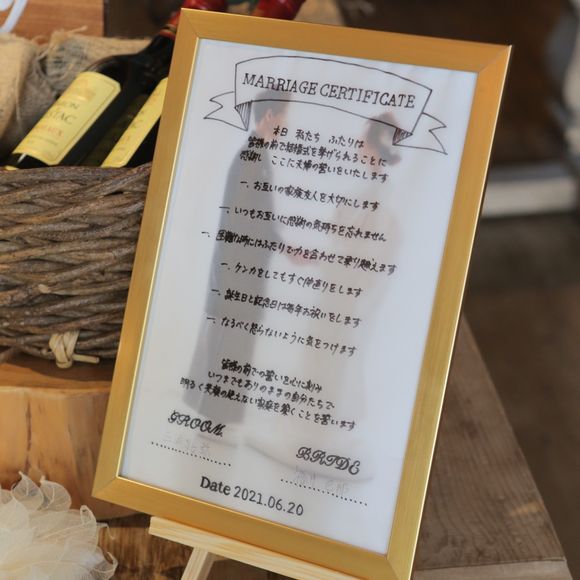 MARRIAGE CERTIFICATE
本日 私たち ふたりは
皆様の前で結婚式を挙げられることに
感謝し ここに夫婦の誓いをいたします
一、お互いの家族友人を大切にします
一、いつもお互いに感謝の気持ちを忘れません
一、困難な時にはふたりで力を合わせて乗り越えます
一、ケンカをしてもすぐ仲直りをします
一、誕生日と記念日は毎年お祝いをします
一、なるべく怒らないように気をつけます
皆様の前での誓いを心に刻み
いつまでもありのままの自分たちで
明るく笑顔の絶えない家庭を築くことを誓います
GROOM
BRIDE
Date 2021.06.20